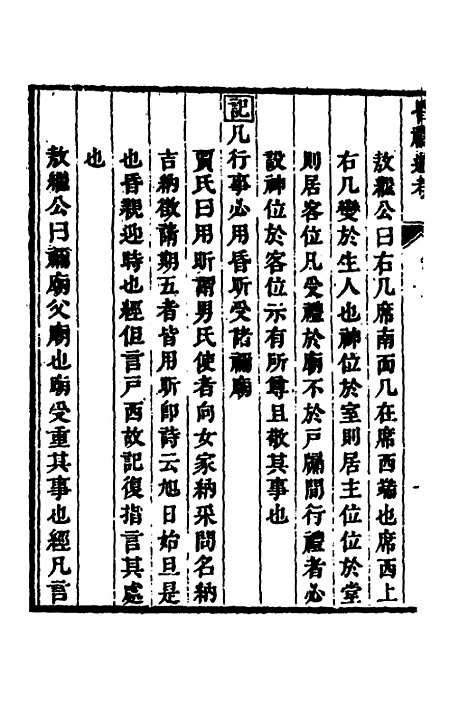 昏禮通考
敖繼公曰右几席南面几在席西端也席西上
右几變於生人也神位於室則居主位位於堂
則居客位凡受禮於廟不於戶牖間行禮者必
設神位於客位示有所尊且敬其事也
記凡行事必用昏昕受諸禰廟
賈氏曰用昕謂男氏使者向女家納采問名納
吉納徵請期五者皆用昕卽詩云旭日始旦是
也昏親迎時也經但言戶西故記復指言其處
也
敖繼公曰禰廟父廟也廟受重其事也經凡言